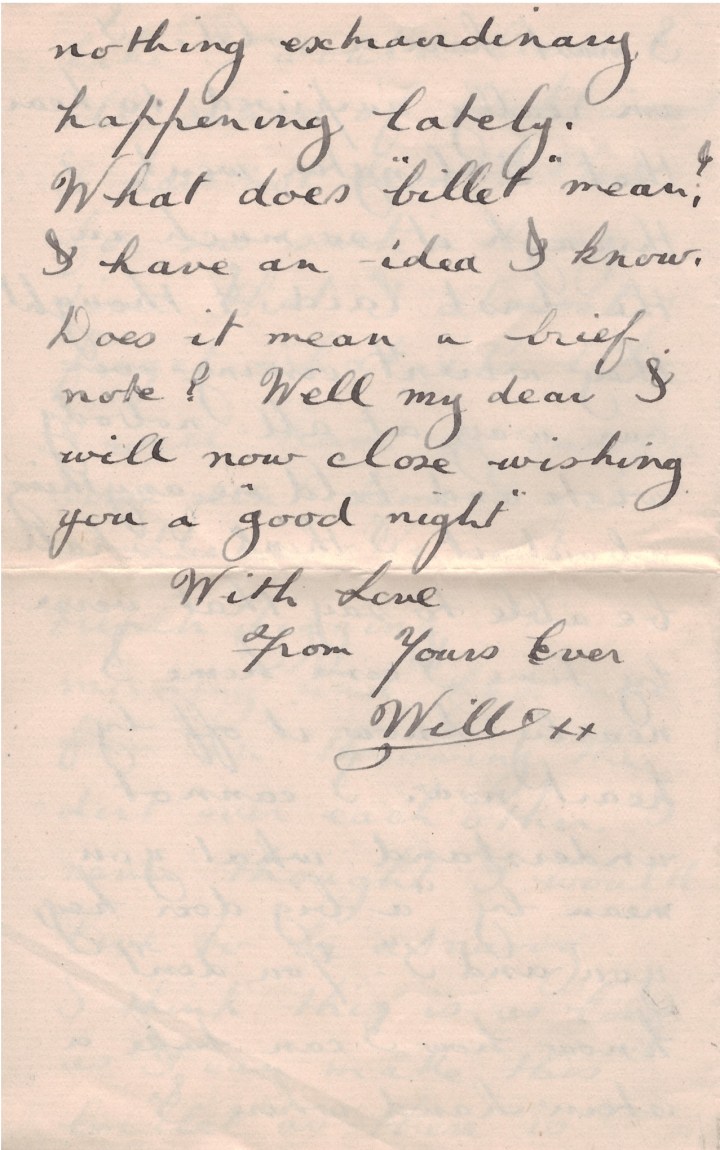 nothing extraordinary
happening lately.
What does "billet" mean?
I have an idea I know.
Does it mean a brief
note? Well my dear I
will now close wishing
you a "good night"
With Love
From Yours Ever
Will xx